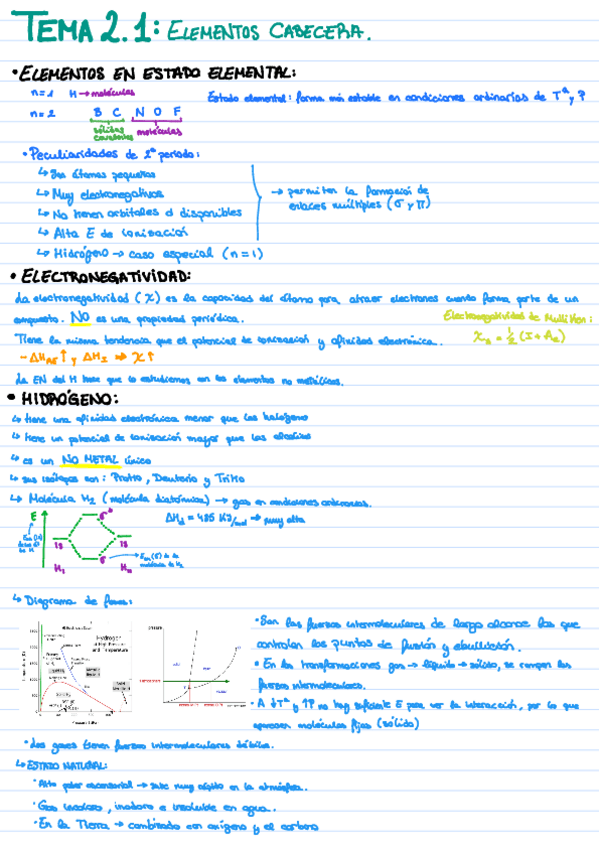 TEMA 2.1: ELEMENTOS CABECERA.
• ELEMENTOS EN ESTADO ELEMENTAL:
n=1 H → moléculas
Estado elemental: forma más estable en condiciones ordinarias de Tª y P
n=2 B C N O F
sólidos covalentes moléculas
• Peculiaridades de 2º periodo:
↳ Son átomos pequeños
↳ Muy electronegativos
↳ No tienen orbitales d disponibles
↳ Alta E de ionización
↳ Hidrógeno → caso especial (n=1)
→ permiten la formación de
enlaces múltiples (σ y π)
• ELECTRONEGATIVIDAD:
La electronegatividad (χ) es la capacidad del átomo para atraer electrones cuando forma parte de un
compuesto. NO es una propiedad periódica.
Electronegatividad de Mulliken:
Tiene la misma tendencia que el potencial de ionización y afinidad electrónica.
χ = 1/2 (I + Ae)
-ΔHAE↑ y ΔHI ⇒ χ↑
La EN del H hace que lo estudiemos con los elementos no metálicos.
• HIDRÓGENO:
↳ tiene una afinidad electrónica menor que los halógeno
↳ tiene un potencial de ionización mayor que los alcalinos
↳ es un NO METAL único
↳ sus isótopos son: Protio, Deuterio y Tritio
↳ Molécula H2 (molécula diatómica) → gas en condiciones ordinarias.
E
σ*
1s 1s
σ
ΔHd = 435 KJ/mol → muy alta
↳ Diagrama de fases:
Hydrogen
at High Pressure
and Temperature
• Son las fuerzas intermoleculares de largo alcance las que
controlan los puntos de fusión y ebullición.
• En las transformaciones gas → líquido → sólido, se rompen las
fuerzas intermoleculares.
• A ↓Tª y ↑P no hay suficiente E para ver la interacción, por lo que
aparecen moléculas fijas (sólido)
• Los gases tienen fuerzas intermoleculares débiles.
↳ ESTADO NATURAL:
• Alto poder ascensorial → sube muy rápido en la atmósfera.
• Gas incoloro, inodoro e insoluble en agua.
• En la Tierra → combinado con oxígeno y el carbono